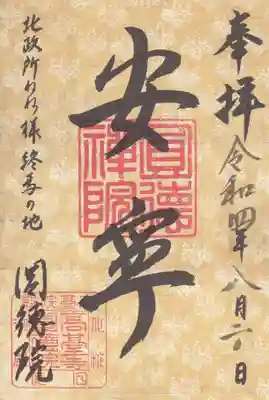 奉拝 令和四年八月 日
安寧
圓德
禪院
北政所ねね様終焉の地
圓徳院
高臺寺